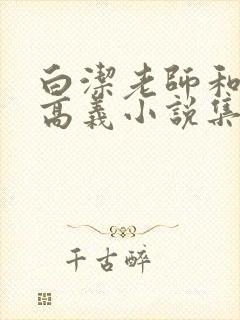 白潔老師和
高義小說集
千古醉